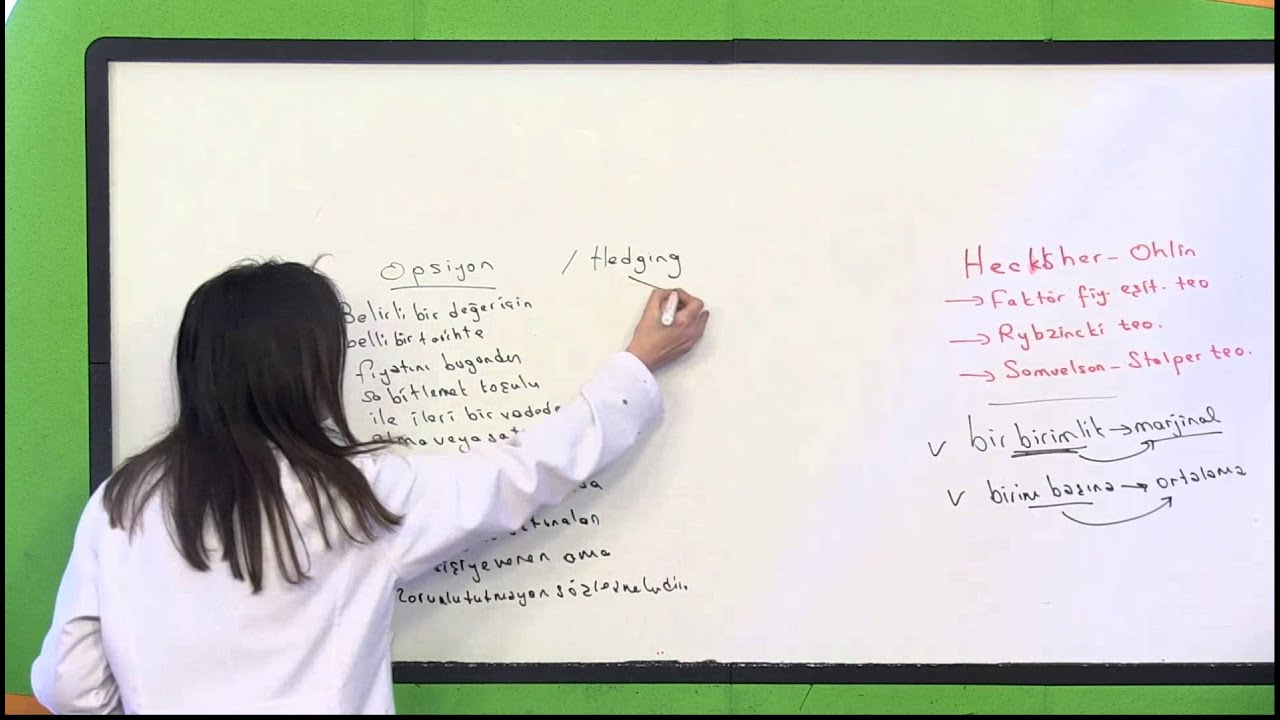 Opsiyon / Hedging
Belirli bir değer için
belli bir tarihte
fiyatını bugünden
sabitlemek koşulu
ile ileri bir vadede
alma veya
kişiye veren ama
zorunlu tutmayan sözleşmelerdir.
Heckscher - Ohlin
→ Faktör fiy. eşit. teo
→ Rybzincki teo.
→ Samuelson - Stolper teo.
v bir birimlik → marjinal
v birim başına → ortalama